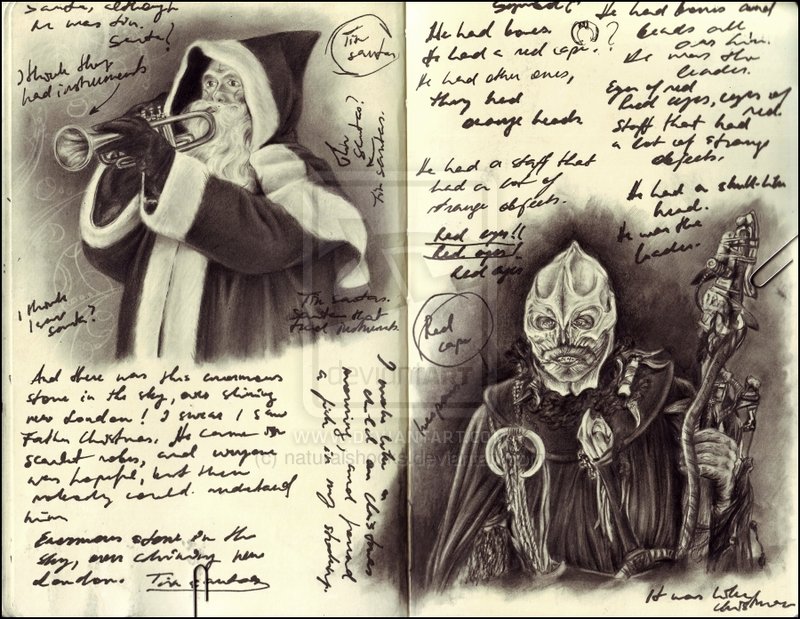 Santa, although
he was tin.
Santa?
I think they
had instruments
Tin
santas
Tin
santas?
Tin santas.
I think
I saw
santa?
Tin santas.
Santas that
had instruments
And there was this enormous
stone in the sky, over shining
new London! I swear I saw
Father Christmas. He came in
scarlet robes, and everyone
was hopeful, but then
nobody could understand
him
Enormous stone in the
sky, over shining new
London. Tin santas
I woke up
on Christmas
morning, and found
a in my stocking
He had bones
He had a red cape.?
He had other ones,
they had
orange heads
He had a staff that
had a lot of
strange objects.
Red eyes!!
Red eyes!
Red eyes
Red
cape
He had bones and
beads all
over him.
He was the
leader.
Eyes of red
Red eyes, eyes of
red
Staff that had
a lot of strange
objects.
He had a skull-him
head.
He was the
leader.
It was
christmas
deviantART
WWW.DEVIANTART.COM
(c) naturalshocks.deviantart.com